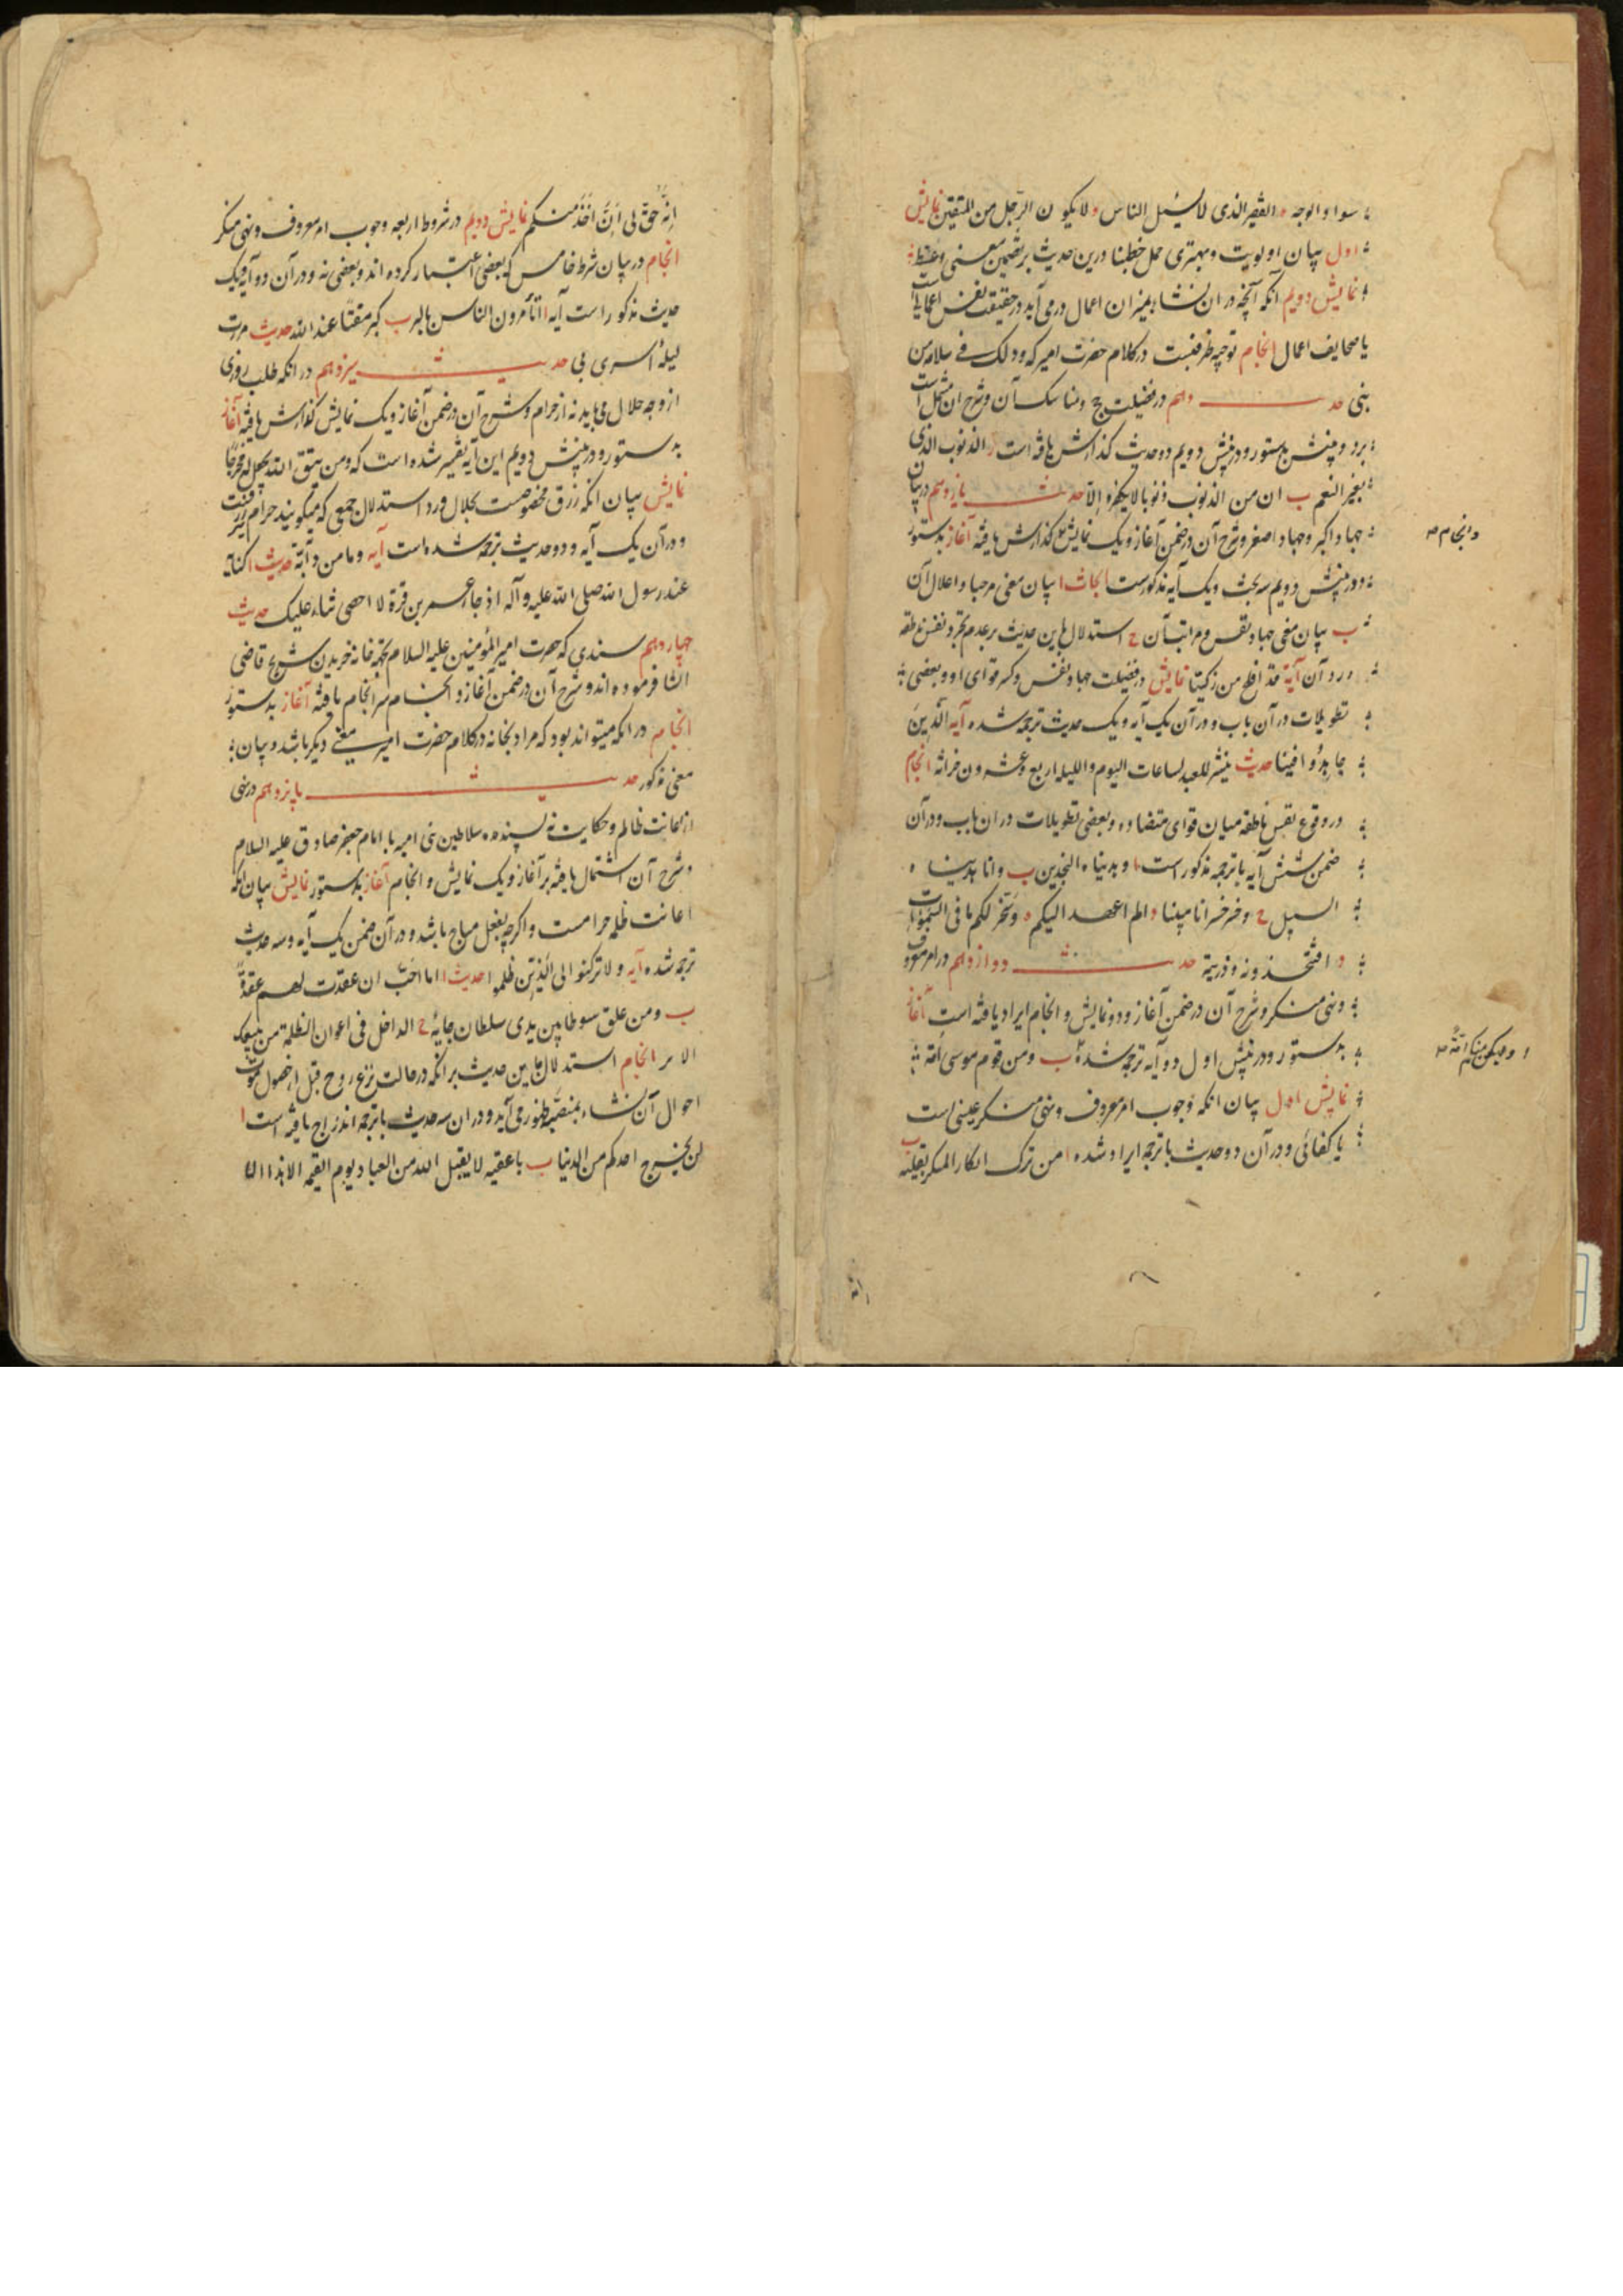 سواد الوجه د الفقیر الذی لا یسئل الناس و لا یکون الرجل من المتقین نمایش
اول بیان اولویت و بهتری حمل خطبنا درین حدیث بر تضمین معنی وعظ
نمایش دویم آنکه آنچه در ان نشاء بمیزان اعمال درمی آید در حقیقت نفس اعمال است
یا صحایف اعمال انجام توجیه ظرفیت در کلام حضرت امیر که و ذلک فی سلامه من
بنی حدیث دهم در فضیلت حج و مناسک آن و شرح ان مشتمل است
برد و پنش بدستور و در پنش دویم دو حدیث گذارش یافته است ا الذنوب الذی
تغیر النعم ب ان من الذنوب ذنوبا لا یکفره الا حدیث یازدهم در بیان
جهاد اکبر و جهاد اصغر و شرح آن در ضمن آغاز و یک نمایش گذارش یافته آغاز بدستور
و انجام صح
و در پنش دویم سه بحث و یک آیه مذکورست ابحاث ا بیان معنی مرحبا و اعلال آن
ب بیان معنی جهاد نفس و مراتب آن ج استدلال باین حدیث بر عدم تجرد نفس ناطقه
و رد آن آیة قد افلح من زکیها نمایش در فضیلت جهاد نفس و کسر قوای او و بعضی
تطویلات در آن باب و در آن یک آیه و یک حدیث ترجمه شده آیه الذین
جاهدوا فینا حدیث ینشر للعبد لساعات الیوم واللیله اربع و عشرون خزانه انجام
در وقوع نفس ناطقه میان قوای متضاده و بعضی تطویلات در ان باب و در آن
ضمن شش آیه با ترجمه مذکور است ا و هدیناه النجدین ب و انا هدیناه
السبیل ج و خر خسرانا مبینا د الم اعهد الیکم ه و سخر لکم ما فی السموات
و افتتخذونه و ذریته حدیث دوازدهم در امر معروف
و نهی منکر و شرح آن در ضمن آغاز و دو نمایش و انجام ایراد یافته است آغاز
بدستور و در پنش اول دو آیه ترجمه شده ب و من قوم موسی امة
ا ولیکن منکم امة صح
نمایش اول بیان انکه وجوب امر معروف و نهی منکر عینی است
یا کفائی و در آن دو حدیث با ترجمه ایراد شده ا من ترک انکار المنکر بقلبه ب
انه حق لی ان آخذ منکم نمایش دویم در شروط اربعه وجوب امر معروف و نهی منکر
انجام در بیان شرط خامس که بعضی اعتبار کرده اند و بعضی نه و در آن دو آیه و یک
حدیث مذکور است آیه ا اتأمرون الناس بالبر ب کبر مقتا عند الله حدیث مررت
لیلة اسری بی حدیث سیزدهم در انکه طلب روزی
از وجه حلال می باید نه از حرام و شرح آن در ضمن آغاز و یک نمایش گذارش یافته آغاز
بدستور و در پنش دویم این آیه تفسیر شده است که و من یتق الله یجعل له مخرجا
نمایش بیان انکه رزق مخصوصست بحلال و رد استدلال جمعی که میگویند حرام نیز رزقست
و در آن یک آیه و دو حدیث ترجمه شده است آیه و ما من دآبة حدیث ا کنا
عند رسول الله صلی الله علیه و آله اذ جاء عمر بن قرة لا احصی ثناء علیک حدیث
چهاردهم سندی که حضرت امیر المؤمنین علیه السلام بجهة خانه خریدن شریح قاضی
انشا فرموده اند و شرح آن در ضمن آغاز و انجام سرانجام یافته آغاز بدستور
انجام در انکه میتواند بود که مراد بخانه در کلام حضرت امیر معنی دیگر باشد و بیان
معنی مذکور حدیث پانزدهم در نهی
از اعانت ظالم و حکایت نویسنده سلاطین بنی امیه با امام جعفر صادق علیه السلام
و شرح آن اشتمال یافته بر آغاز و یک نمایش و انجام آغاز بدستور نمایش بیان انکه
اعانت ظلمه حرامست و اگرچه بفعل مباح باشد و در آن ضمن یک آیه و سه حدیث
ترجمه شده آیه و لا ترکنوا الی الذین ظلموا حدیث ا ما احب ان عقدت لهم عقدة
ب و من علق سوطا بین یدی سلطان جایر ج الداخل فی اعوان الظلمة
انجام استدلال باین حدیث بر انکه در حالت نزع روح قبل از حصول موت
احوال آن نشاء بمنصه ظهور می آید و در ان سه حدیث با ترجمه اندراج یافته است ا
لن یخرج احدکم من الدنیا ب یا عقبه لا یقبل الله من العباد یوم القیمه الا هذا